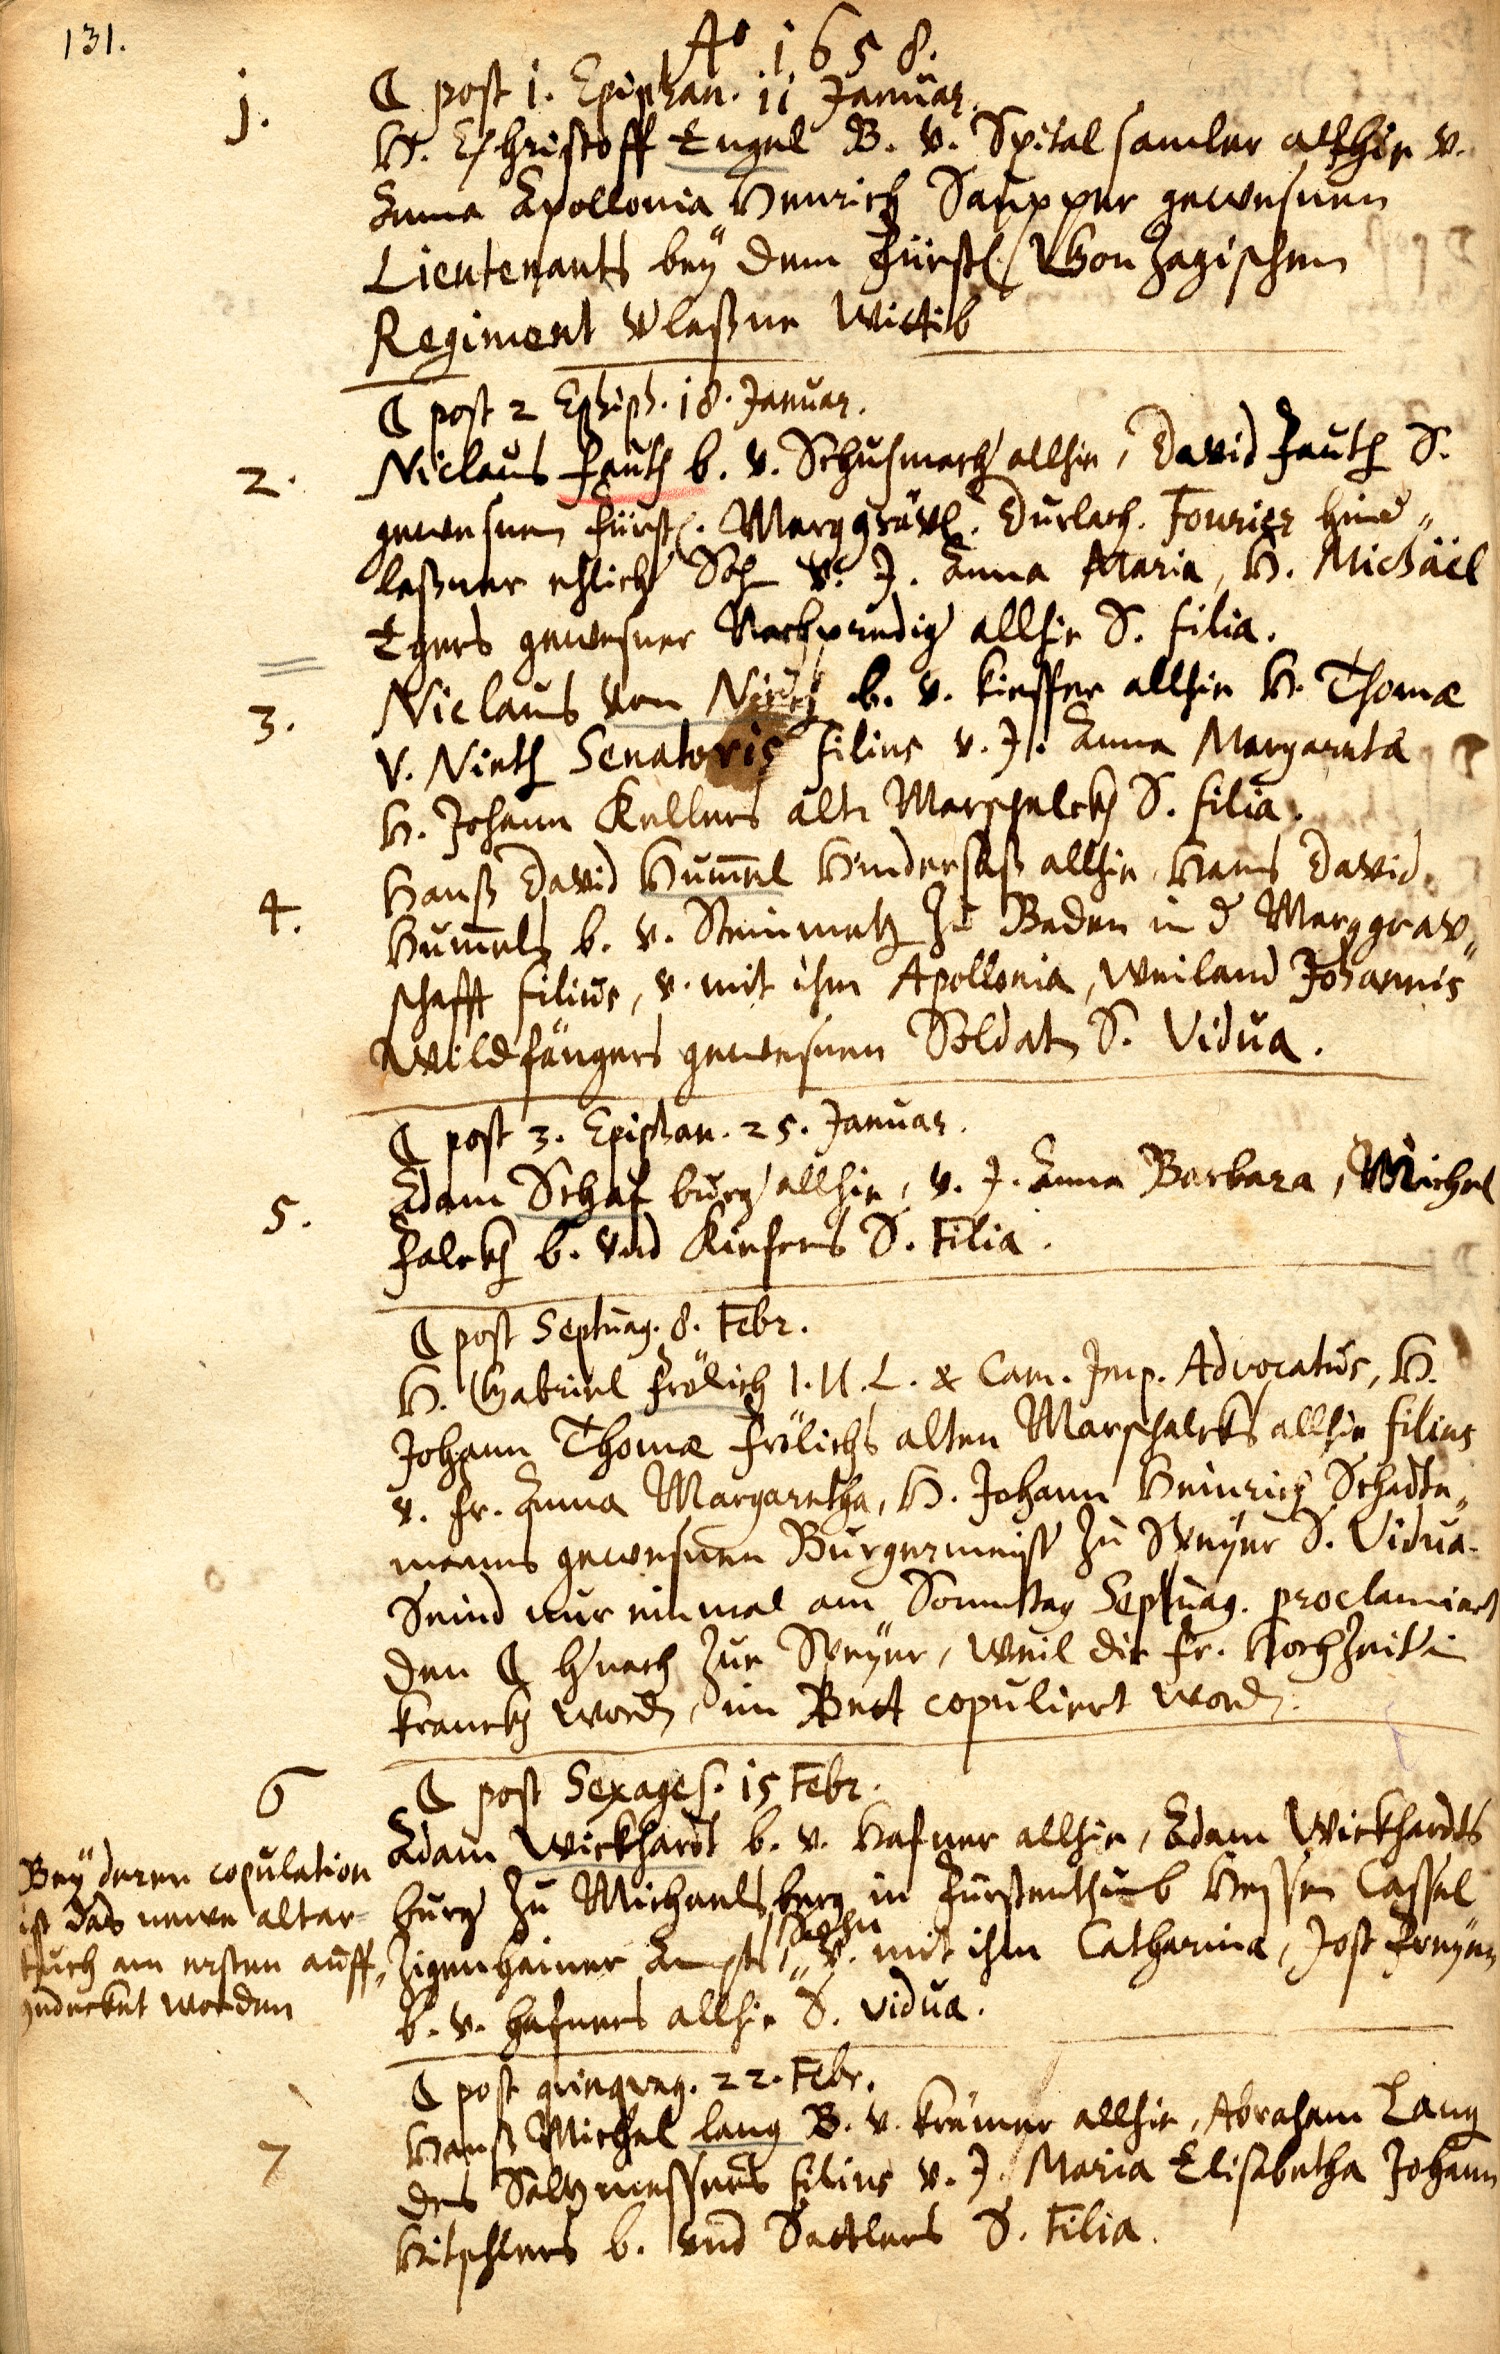 131.
Aº 1658.
1.
☾ post 1. Epiphan. 11 Januar.
H. Christoff Engel B. v. Spitalsamler allhie v.
Anna Apollonia Henrich Saupper gewesnen
Lieutenants beÿ dem Fürstl. Gonzagischen
Regiment vlaßne Wittib
☾ post 2 Ephiph. 18. Januar.
2.
Niclaus Fauth b. v. Schuhmach allhie, David Fauth S.
gewesnen fürstl. Marggrävl. Durlach. Fourier hind„
laßner ehlich Soh v. J. Anna Maria, H. Michäel
Egers gewesner Nachpredig allhie S. filia.
3.
Niclaus von Nieth b. v. kieffer allhie H. Thomæ
V. Nieth Senatoris filius v. J. Anna Margareta
H. Johann Kellers alt Marschalck S. filia.
4.
Hanß David Hum̄el Hindersaß allhie Hans David
Hum̄els b. v. Steinmetz zu Baden in d Marggrav„
schafft filius, v. mit ihm Apollonia, weiland Johannis
Wildfängers gewesnen Soldat S. Vidua.
☾ post 3. Epiphan. 25. Januar.
5.
Adam Schaf burg allhie, v. J. Anna Barbara, Michel
Falck b. vnd Kiefers S. Filia.
☾ post Septuag. 8. Febr.
H. Gabriel Frölich I. U. L. & Cam. Imp. Advocatus, H.
Johann Thomæ Frölichs alten Marschalcks allhie filius
v. Fr. Anna Margaretha, H. Johann Heinrich Schadte„
manns gewesnen Burgermeist zu Speÿer S. Vidua.
Seind nur einmal am Sonntag Septuag. proclamiert
den ☾ hnach zue Speÿer, weil die Fr. Hochzeit
kranck word, im Bett copuliert word.
6
☾ post Sexages. 15 Febr.
Adam Wickhardt b. v. Hafner allhie, Adam Wickhardts
burg zu Michaelsberg in Fürstenthumb Hessen Cassel
Sohn
Zigenhainer Ampts v. mit ihm Catharina, Jost Freÿen
b. v. hafners allhie S. vidua.
Beÿ deren copulation
ist das newe altar-
tuch am ersten auff„
gedecket worden
☾ post quinquag. 22. Febr.
7
Hanß Michel Lang B. v. krämer allhie, Abraham Lang
des Saltzmessers filius v. J. Maria Elisabetha Johann
Hitschlers b. vnd Sattlers S. Filia.